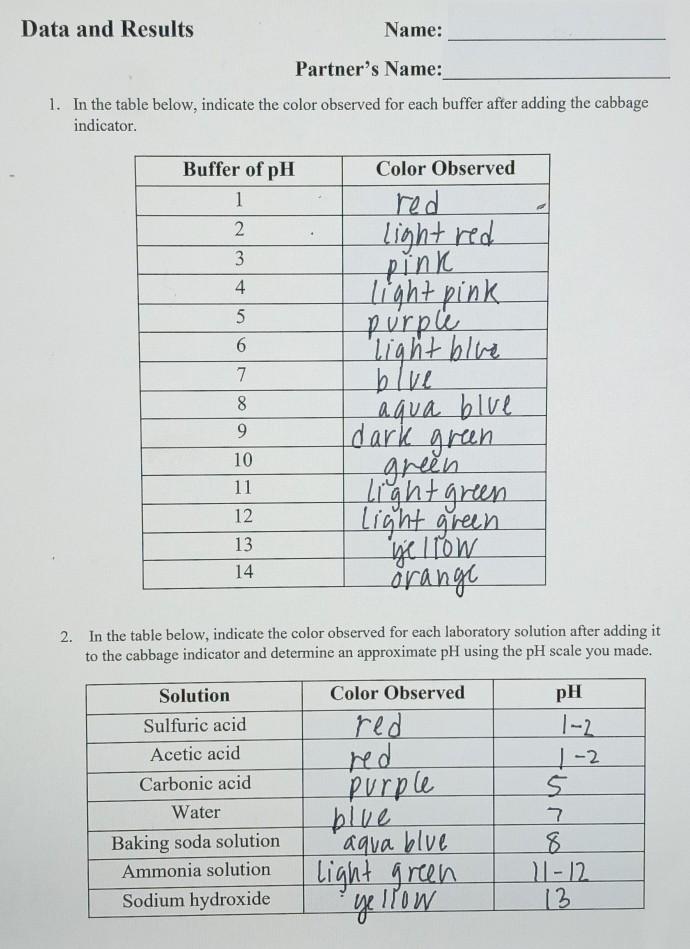 Data and Results Name:
Partner's Name:
1. In the table below, indicate the color observed for each buffer after adding the cabbage
indicator.
Buffer of pH Color Observed
1 red
2 light red
3 pink
4 light pink
5 purple
6 light blue
7 blue
8 aqua blue
9 dark green
10 green
11 light green
12 light green
13 yellow
14 orange
2. In the table below, indicate the color observed for each laboratory solution after adding it
to the cabbage indicator and determine an approximate pH using the pH scale you made.
Solution Color Observed pH
Sulfuric acid red 1-2
Acetic acid red 1-2
Carbonic acid purple 5
Water blue 7
Baking soda solution aqua blue 8
Ammonia solution light green 11-12
Sodium hydroxide yellow 13